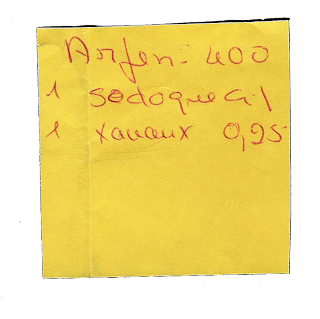 Arfen: 400
1 sedoquegil
1 xanaux 0,25